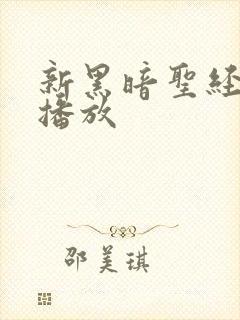 新黑暗聖経
播放
邵美琪